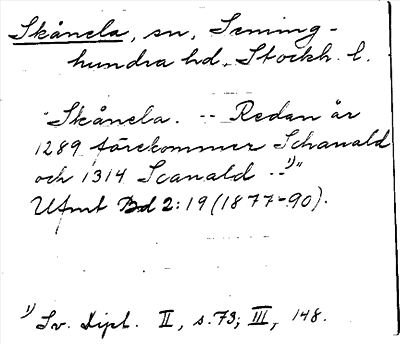 Skånela, sn, Seming-
hundra hd, Stockh. l.
"Skånela. -- Redan år
1289 förekommer Schanald
och 1314 Scanald --1)"
Ufmt Bd 2:19 (1877-90).
1) Sv. Dipl. II, s. 73; III, 148.